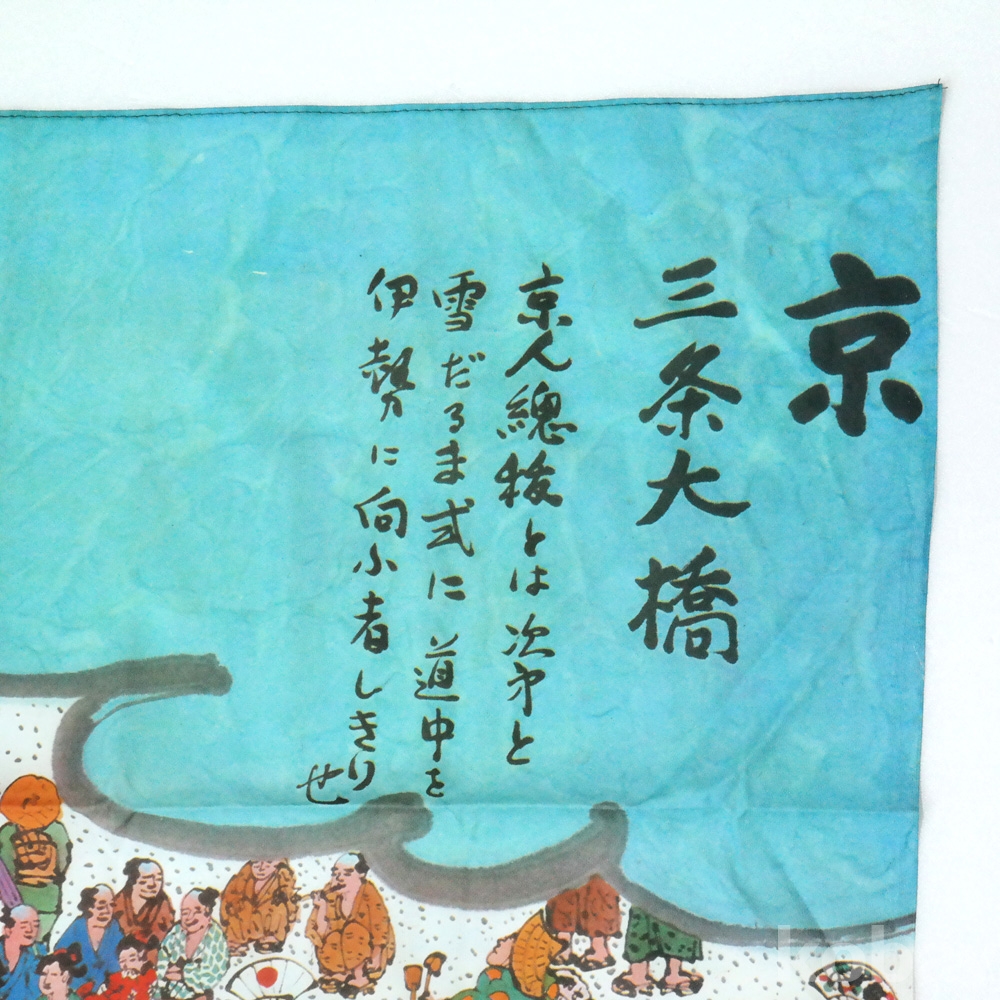 京
三条大橋
京人總抜とは次㐧と
雪だるま式に道中を
伊勢に向小者しきり
也